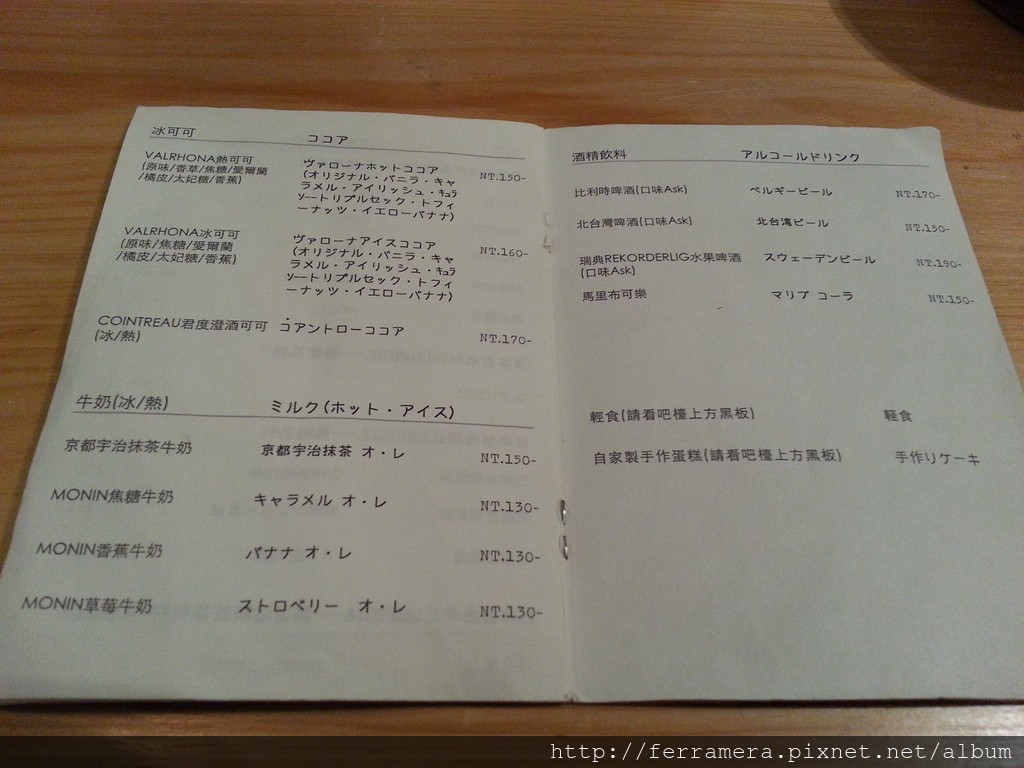 冰可可 ココア
VALRHONA熱可可
(原味/香草/焦糖/愛爾蘭
/橘皮/太妃糖/香蕉)
ヴァローナホットココア
(オリジナル・バニラ・キャ
ラメル・アイリッシュ・キュラ
ソートリプルセック・トフィ
ーナッツ・イエローバナナ)
NT.150-
VALRHONA冰可可
(原味/焦糖/愛爾蘭
/橘皮/太妃糖/香蕉)
ヴァローナアイスココア
(オリジナル・バニラ・キャ
ラメル・アイリッシュ・キュラ
ソートリプルセック・トフィ
ーナッツ・イエローバナナ)
NT.160-
COINTREAU君度澄酒可可
(冰/熱)
コアントローココア
NT.170-
牛奶(冰/熱) ミルク(ホット・アイス)
京都宇治抹茶牛奶 京都宇治抹茶 オ・レ NT.150-
MONIN焦糖牛奶 キャラメル オ・レ NT.130-
MONIN香蕉牛奶 バナナ オ・レ NT.130-
MONIN草莓牛奶 ストロベリー オ・レ NT.130-
酒精飲料 アルコールドリンク
比利時啤酒(口味Ask) ベルギービール NT.170-
北台灣啤酒(口味Ask) 北台湾ビール NT.150-
瑞典REKORDERLIG水果啤酒
(口味Ask)
スウェーデンビール NT.190-
馬里布可樂 マリブ コーラ NT.150-
輕食(請看吧檯上方黑板) 軽食
自家製手作蛋糕(請看吧檯上方黑板) 手作りケーキ
http://ferramera.pixnet.net/album